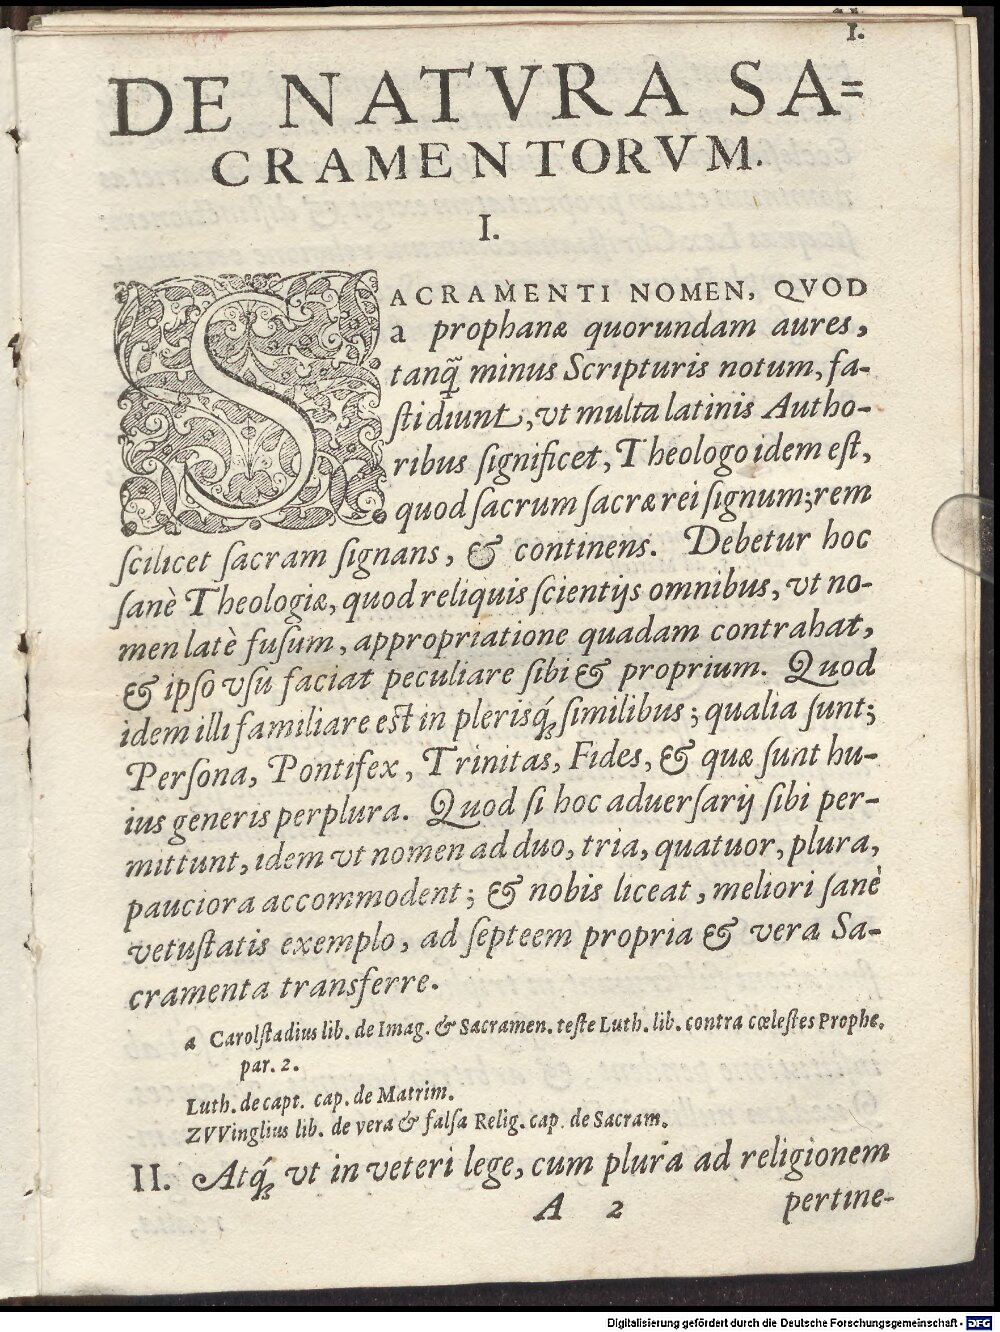 1.
DE NATVRA SA=
CRAMENTORVM.
I.
SACRAMENTI NOMEN, QVOD
a prophanæ quorundam aures,
tanq̃ minus Scripturis notum, fa-
ſtidiunt, vt multa latinis Autho-
ribus ſignificet, Theologo idem eſt,
quod ſacrum ſacræ rei ſignum; rem
ſcilicet ſacram ſignans, & continens. Debetur hoc
ſanè Theologiæ, quod reliquis ſcientijs omnibus, vt no-
men latè fuſum, appropriatione quadam contrahat,
& ipſo vſu faciat peculiare ſibi & proprium. Quod
idem illi familiare est in plerisq́ꝫ ſimilibus; qualia ſunt;
Perſona, Pontifex, Trinitas, Fides, & quæ ſunt hu-
ius generis perplura. Quod ſi hoc aduerſarij ſibi per-
mittunt, idem vt nomen ad duo, tria, quatuor, plura,
pauciora accommodent; & nobis liceat, meliori ſanè
vetuſtatis exemplo, ad ſepteem propria & vera Sa-
cramenta transferre.
a Carolſtadius lib. de Imag. & Sacramen. teſte Luth. lib. contra cœleſtes Prophe.
par. 2.
Luth. de capt. cap. de Matrim.
ZVVinglius lib. de vera & falſa Relig. cap. de Sacram.
II. Atq́ꝫ vt in veteri lege, cum plura ad religionem
A 2 pertine-
Digitalisierung gefördert durch die Deutsche Forschungsgemeinschaft - DFG